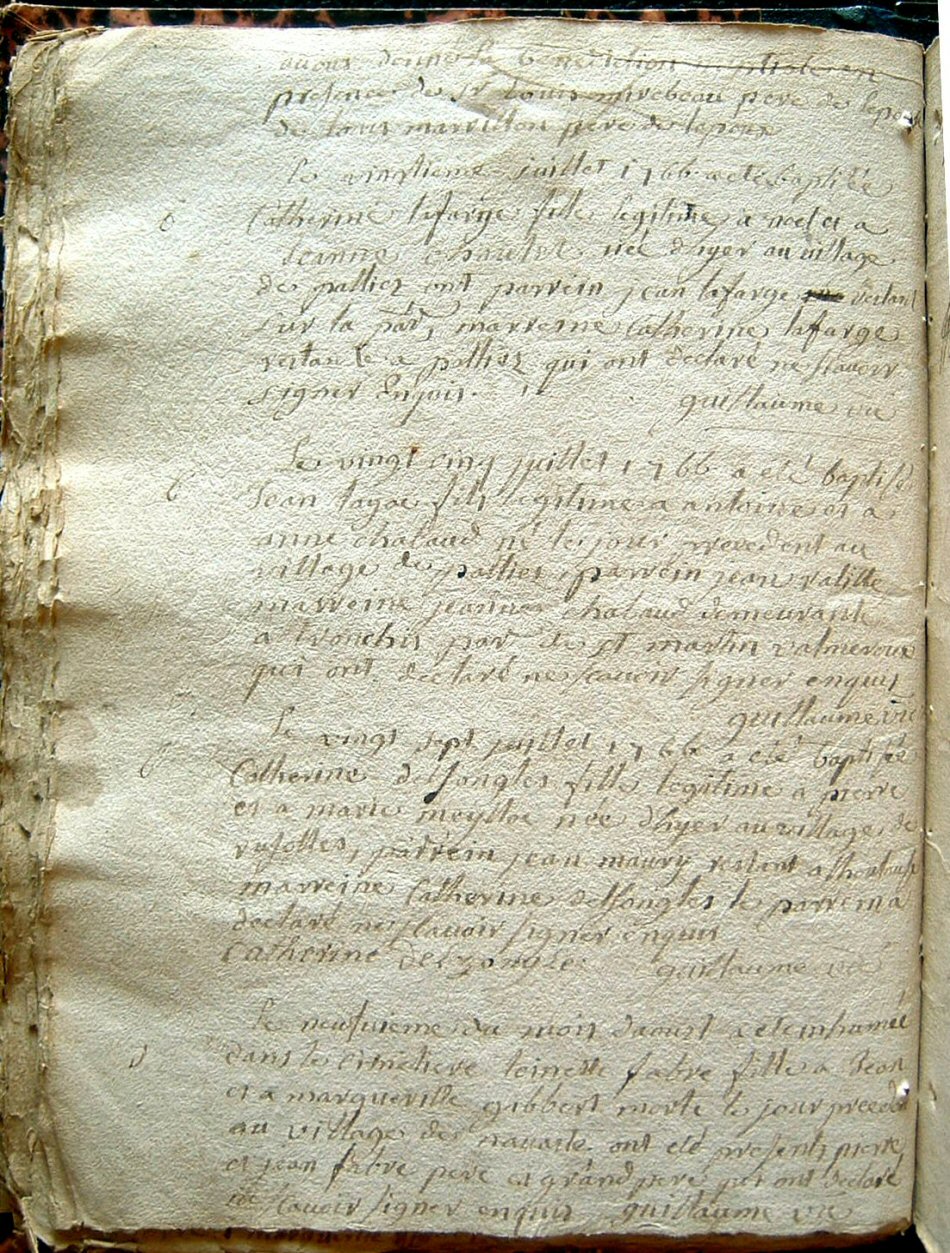 avons donne la benediction nuptiale en
presence de Sr Louis mirebeau pere de lepouse
de Louis marruton pere de lepoux
Le vingtieme juillet 1766 a ete baptisée
b Catherine lafarge fille legitime a et a
Jeanne née dhyer au village
de palliez ont parrein jean lafarge restant
sur la parr, marreine Catherine lafarge
restante a palliez qui ont declaré ne scavoir
signer Enquis. guillaume vic
Le vingt cinq juillet 1766 a eté baptisé
b Jean fils legitime a antoine et a
anne chabaud né le jour precedent au
village de pallies, parrein jean valette
marreine jeanne chabaud demeurante
a tronchis parr de st martin valmeroux
qui ont declaré ne scavoir signer enquis
guillaume vic
Le vingt sept juillet 1766 a eté baptisée
b Catherine delsongles fille legitime a pierre
et a marie née dhyer au village de
rusolles, parrein jean maury restant a
marreine Catherine delsongles le parrein a
declaré ne scavoir signer enquis
Catherine delzongle guillaume vic
Le neufvieme du mois daoust a eté inhumée
dans le cimetiere toinette fabre fille a Jean
et a margueritte gibbert morte le jour precedent
au village de navaste ont eté presents pierre
et jean fabre pere et grand pere qui ont declaré
ne scavoir signer enquis guillaume vic